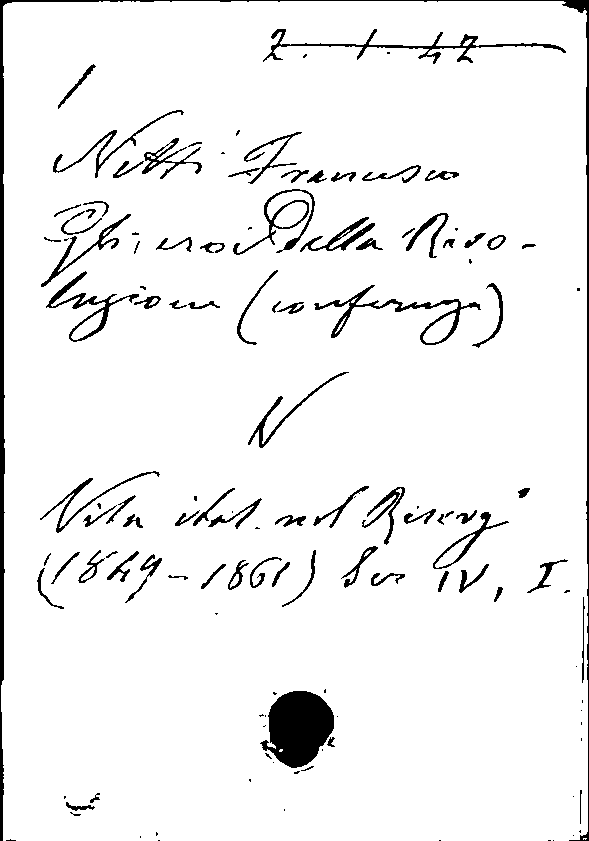 2.1.42
1
Nitti Francesco
Gli eroi della Rivo-
luzione (conferenza)
N
Vita ital. nel Risorgº
(1849-1861) Ser IV, I.